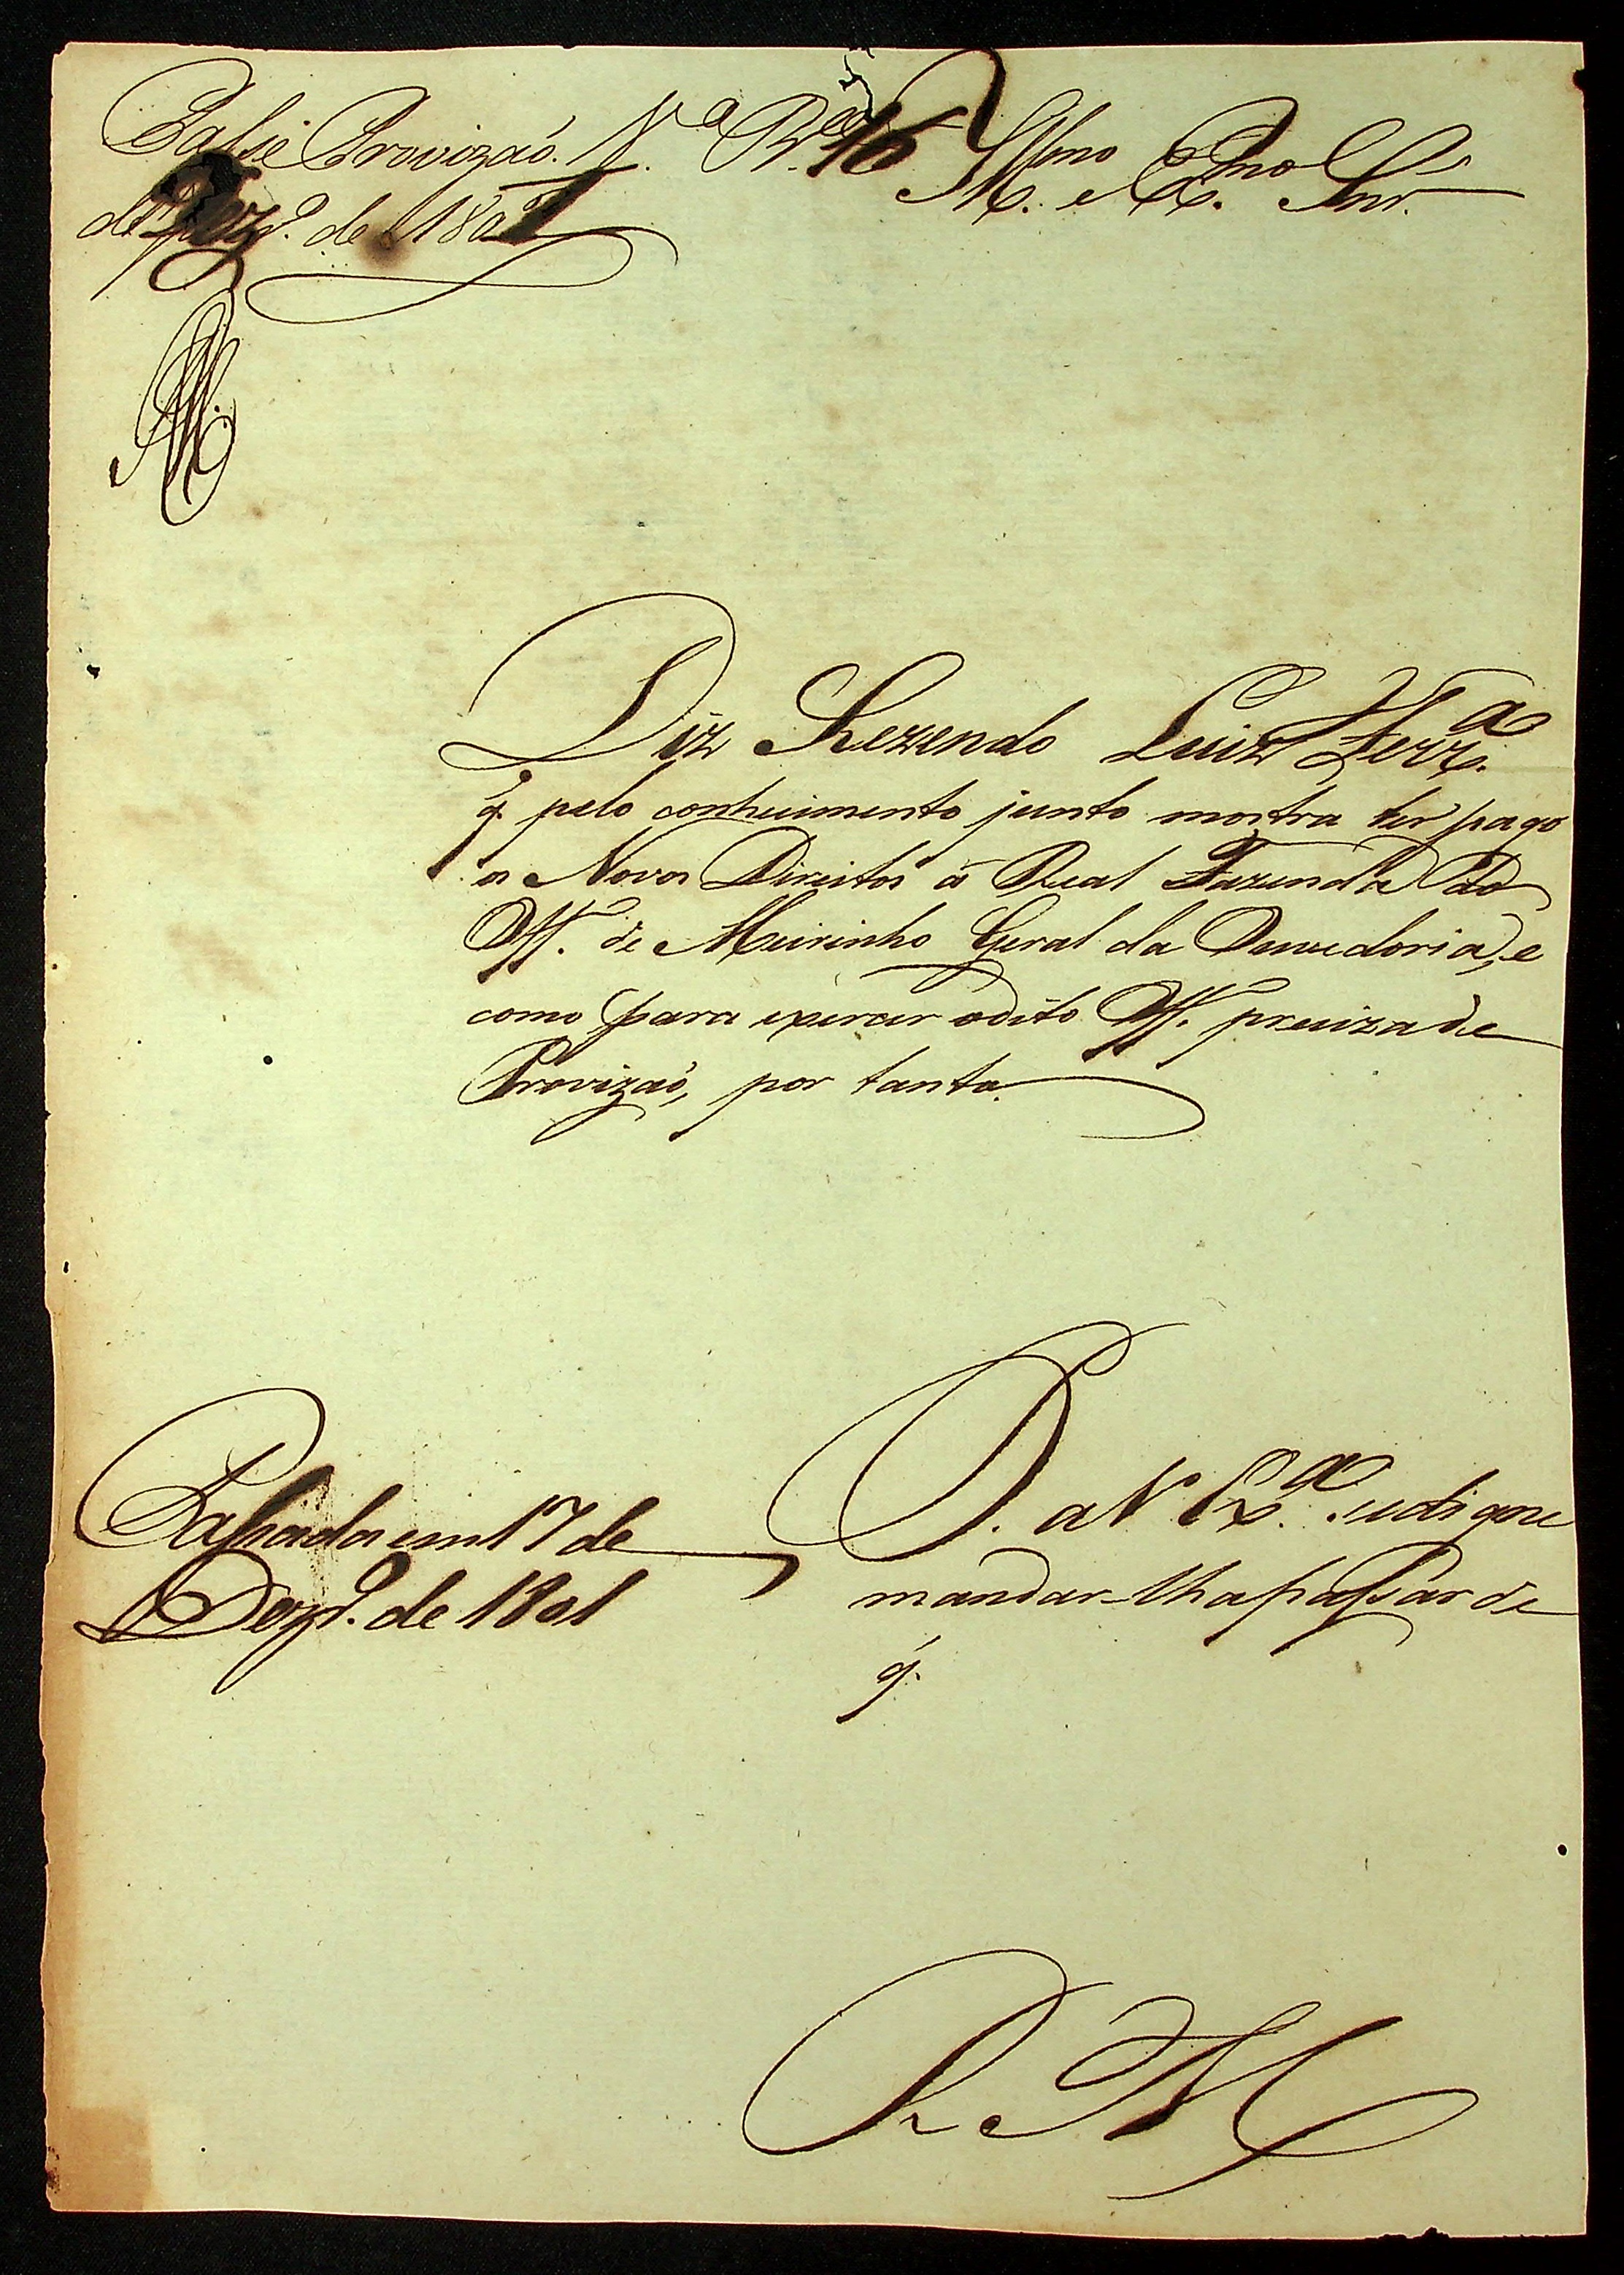 Passe Provizaõ. V.ª R.ca 16
de Dezbº. de 1801
Illmo. e Exmo. Snr.
Diz Rezendo Luiz Ferr.ª
q. pelo conhecimento junto mostra ter pago
os Novos Direitos á Real Fazenda do
Off. de Meirinho Geral da Ouvedoria, e
como para exercer odito Off. precizade
Provizaõ, por tanto.
P. a V. Ex.ª sedigne
mandar-lha passar de
q.
Passada em 17 de
Dezbº. de 1801
R M